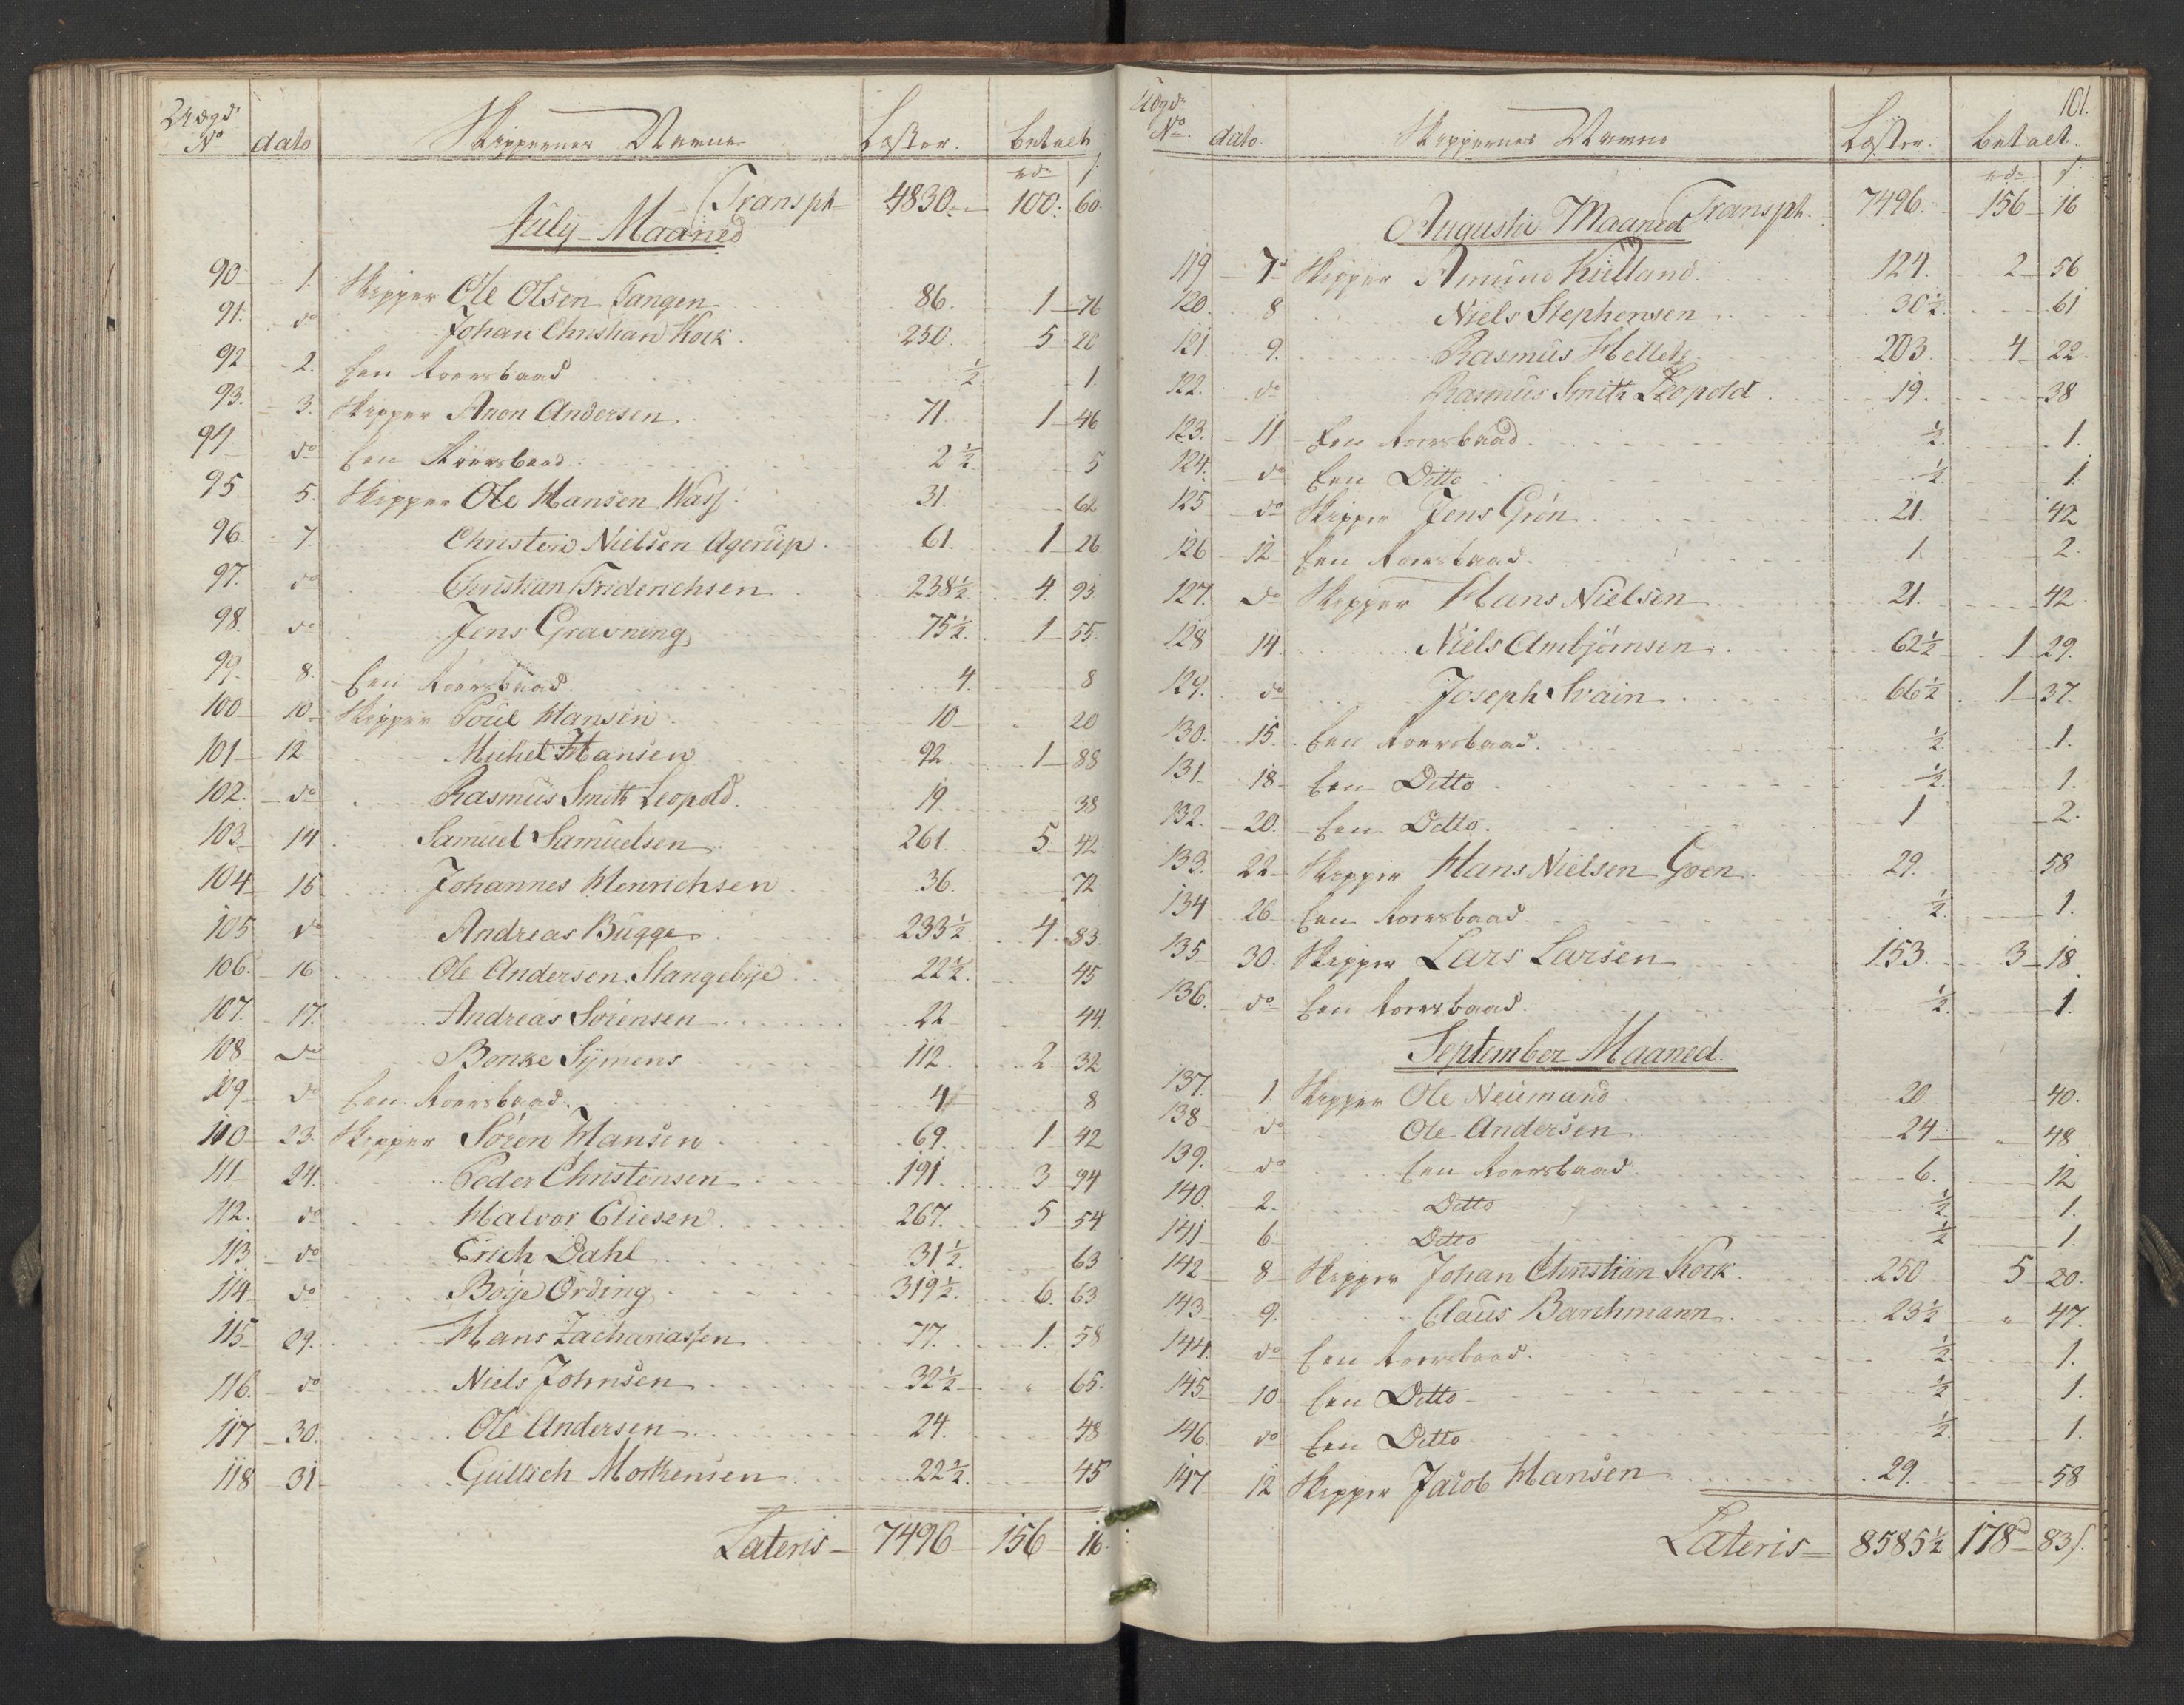 Udgds
No dato Skippernes Navne Læster. betalt
rdr ſ
Transpt 4830. 100. 60.
July Maaned
90 1. Skipper Ole Olsen Tangen 86. 1 76
91. do Johan Christian Kock 250. 5 20
92 2. Een Roersbaad ½ 1.
93. 3. Skipper Aron Andersen 71 1 46
94 do Een Roersbaad 2½ 5
95 5. Skipper Ole Hansen Wass 31. 62
96. 7 Christen Nielsen Agerup 61. 1 26
97. do Christian Friderichsen 238½ 4. 93.
98. do Jens Gravning 75½. 1 55.
99. 8. Een Roersbaad 4. 8
100 10 Skipper Poul Hansen 10 20
101 12 Michel Hansen 92 1 88
102. do Rasmus Smith Leopold. 19. 38
103 14 Samuel Samuelsen 261 5 42
104 15 Johannes Henrichsen 36. 72
105 do Andreas Bugge 233½ 4. 83.
106. 16 Ole Andersen Stangebye 22½. 45
107. 17. Andreas Sørensen 22 44
108 do Bonke Sijmens 112. 2 32
109 do Een Roersbaad. 4 8
110 23. Skipper Søren Hansen 69. 1 42
111 24. Peder Christensen 191. 3 94
112. do Halvor Eliesen 267. 5 54
113. do Erich Dahl 31½. 63
114 do Boije Ording 319½. 6. 63
115 29. Hans Zachariassen 77. 1. 58
116. do Niels Johnsen 32½ 65.
117 30. Ole Andersen 24. 48
118 31 Gullich Morthensen 22½. 45
Lateris 7496 156 16.
101.
Udgds
No. dato. Skippernes Navne Læster. betalt.
rdr ſ
Transpt. 7496. 156 16
Augustii Maaned
119 7d Skipper Amund Kielland. 124. 2 56
120. 8 Niels Stephensen 30½. 61
121 9. Rasmus Hellets 203 4 22.
122. do Rasmus Smith Leopold 19. 38
123. 11 Een Roersbaad. ½. 1.
124. do Een Ditto ½. 1.
125 do Skipper Jens Grøn 21. 42
126 12 Een Roersbaad. 1. 2.
127. do Skipper Hans Nielsen 21. 42
128 14 Niels Ambjørnsen 62½ 1 29.
129. do Joseph Svain 66½ 1 37.
130. 15. Een Roersbaad. ½ 1.
131. 18 Een Ditto ½. 1.
132. 20. Een Ditto. 1 2.
133. 22 Skipper Hans Nielsen Goen 29. 58
134 26 Een Roersbaad ½. 1.
135 30. Skipper Lars Larsen 153. 3 18
136. do Een Roersbaad ½. 1.
September Maaned.
137. 1. Skipper Ole Neumand 20 40.
138 do Ole Andersen 24 48
139. do Een Roersbaad 6. 12
140 2. Ditto ½. 1.
141 6 Ditto ½ 1.
142 8 Skipper Johan Christian Kock. 250 5 20.
143 9. Claus Barchmann 23½ 47.
144. do Een Roersbaad. ½. 1.
145 10 Een Ditto ½ 1.
146. do Een Ditto ½. 1.
147 12 Skipper Jacob Hansen 29. 58
Lateris 8585½ 178d 83ſ.